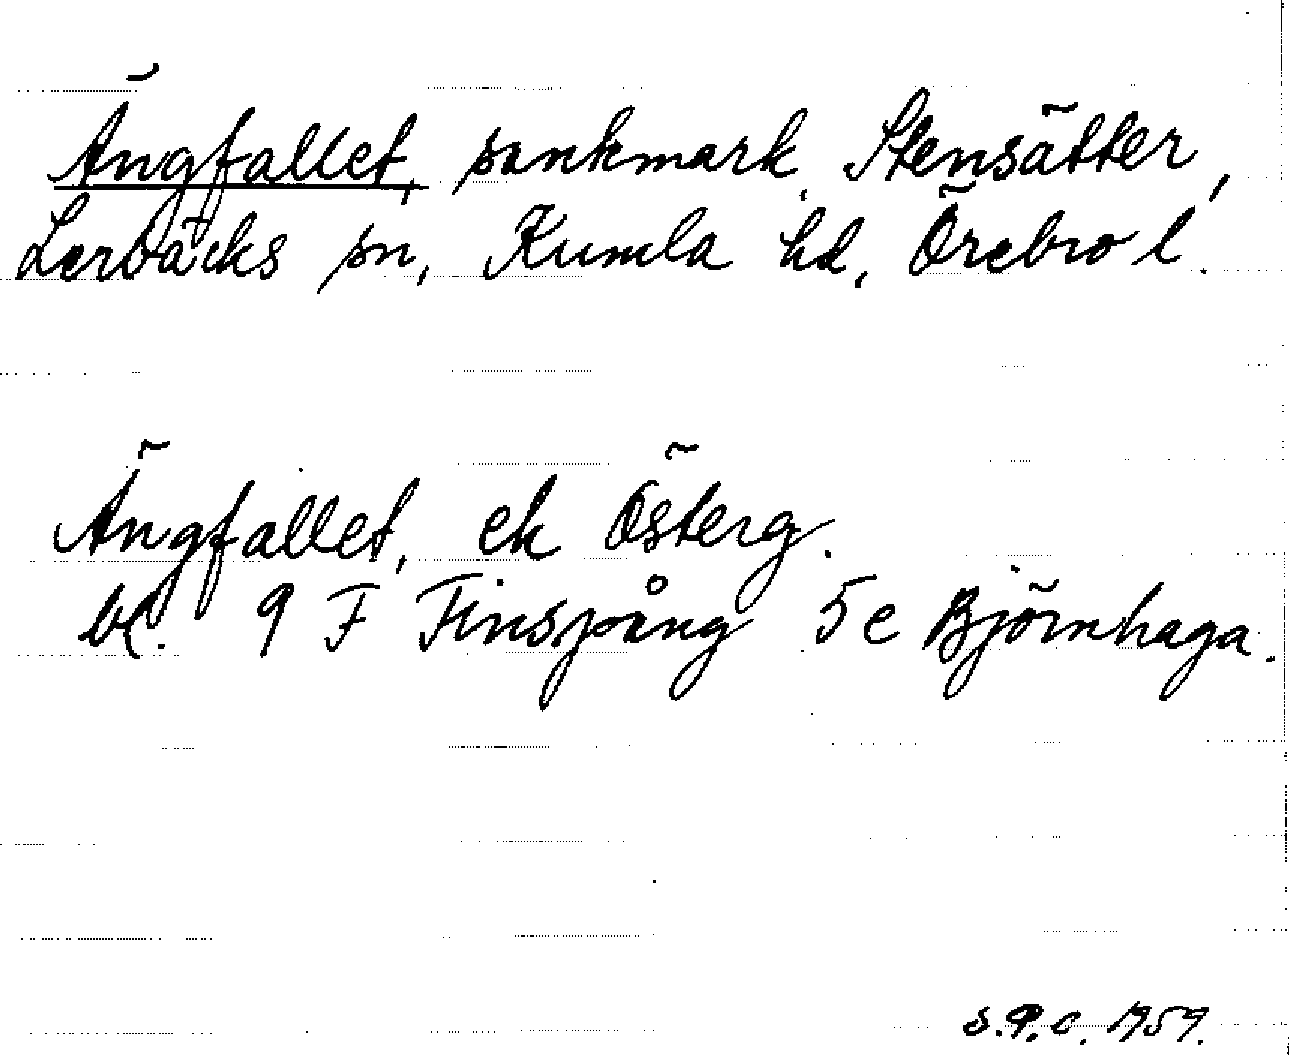 Ängfallet, sankmark, Stensätter,
Lerbäcks sn, Kumla hd, Örebro l.
Ängfallet, ek Österg.
bl. 9 F Finspång 5e Björnhaga.
S.P.C. 1959.